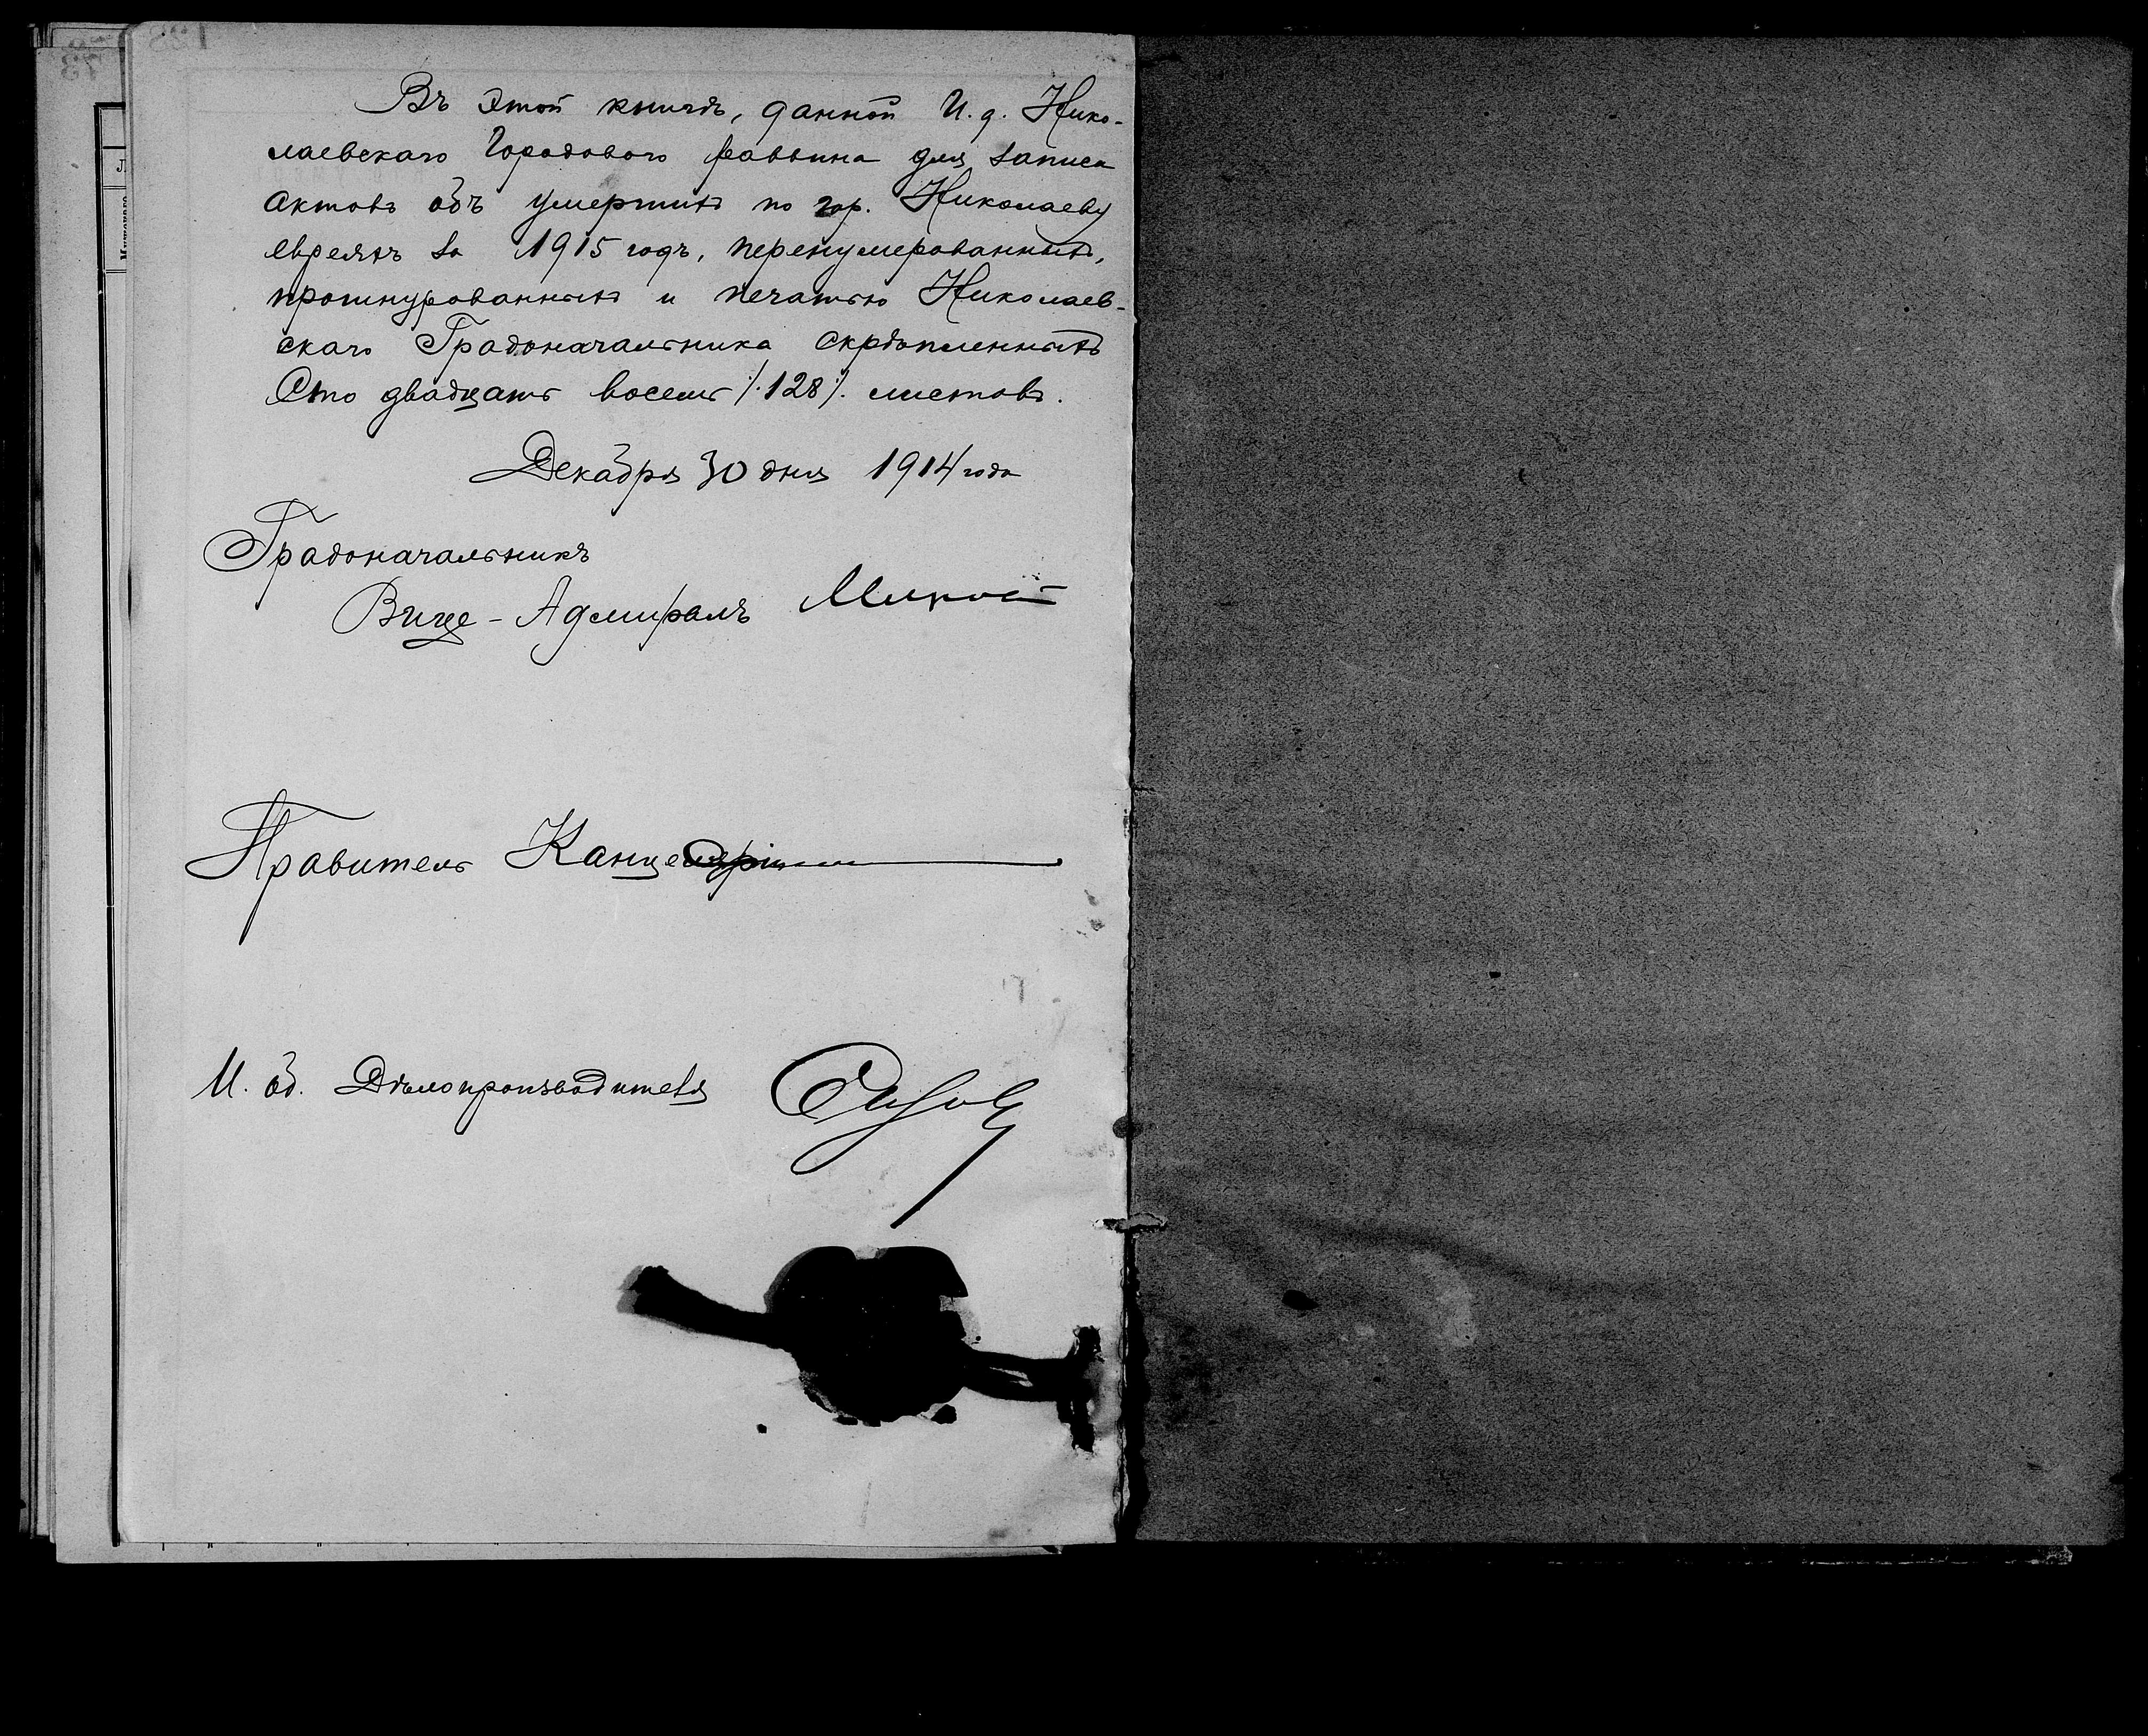 Въ этой книгѣ, данной И. д. Нико-
лаевскаго Городового раввина для записи
актовъ объ умершихъ по гор. Николаеву
евреяхъ за 1915 годъ, перенумерованныхъ,
прошнурованныхъ и печатью Николаев-
скаго Градоначальника скрѣпленныхъ
Сто двадцать восемь /.128/. листовъ.
Декабря 30 дня 1914 года
Градоначальникъ
Вице-Адмиралъ
Правитель Канцеляріи
И. об. Дѣлопроизводителя